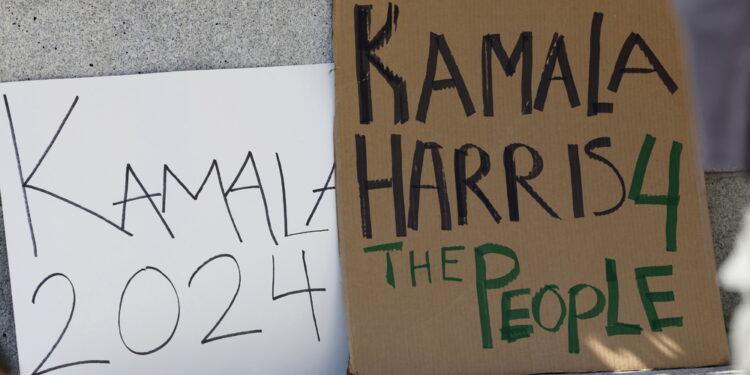 KAMALA
2024
KAMALA
HARRIS 4
THE PEOPLE